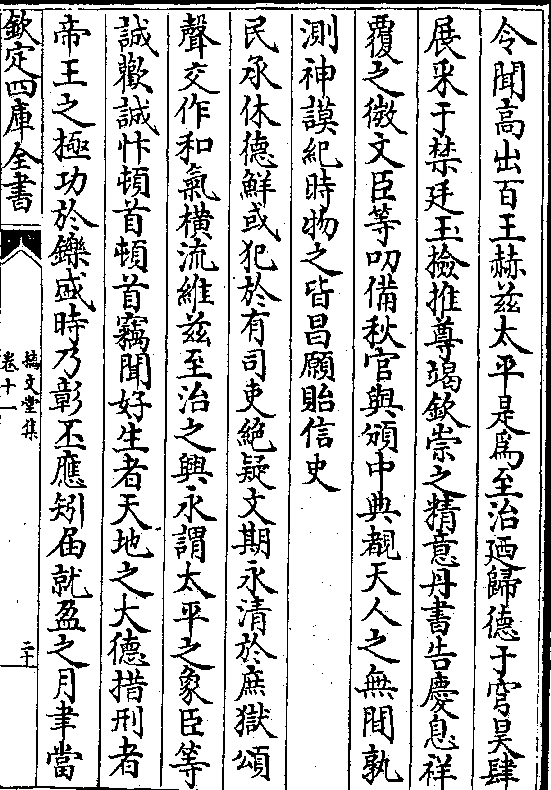 令聞高出百王赫兹太平是為至治廼歸德于穹昊肆
展采于禁廷玉撿推尊竭欽崇之精意丹書告慶息祥
覆之微文臣等叨備秋官與頒中典覩天人之無間孰
測神謨紀時物之皆昌願貽信史
民承休德鮮或犯於有司吏絶疑文期永清於庶獄頌
聲交作和氣横流維兹至治之興永謂太平之象臣等
誠歡誠忭頓首頓首竊聞好生者天地之大德措刑者
帝王之極功於鑠盛時乃彰丕應矧届就盈之月聿當
欽定四庫全書
摛文堂集
卷十一
二十